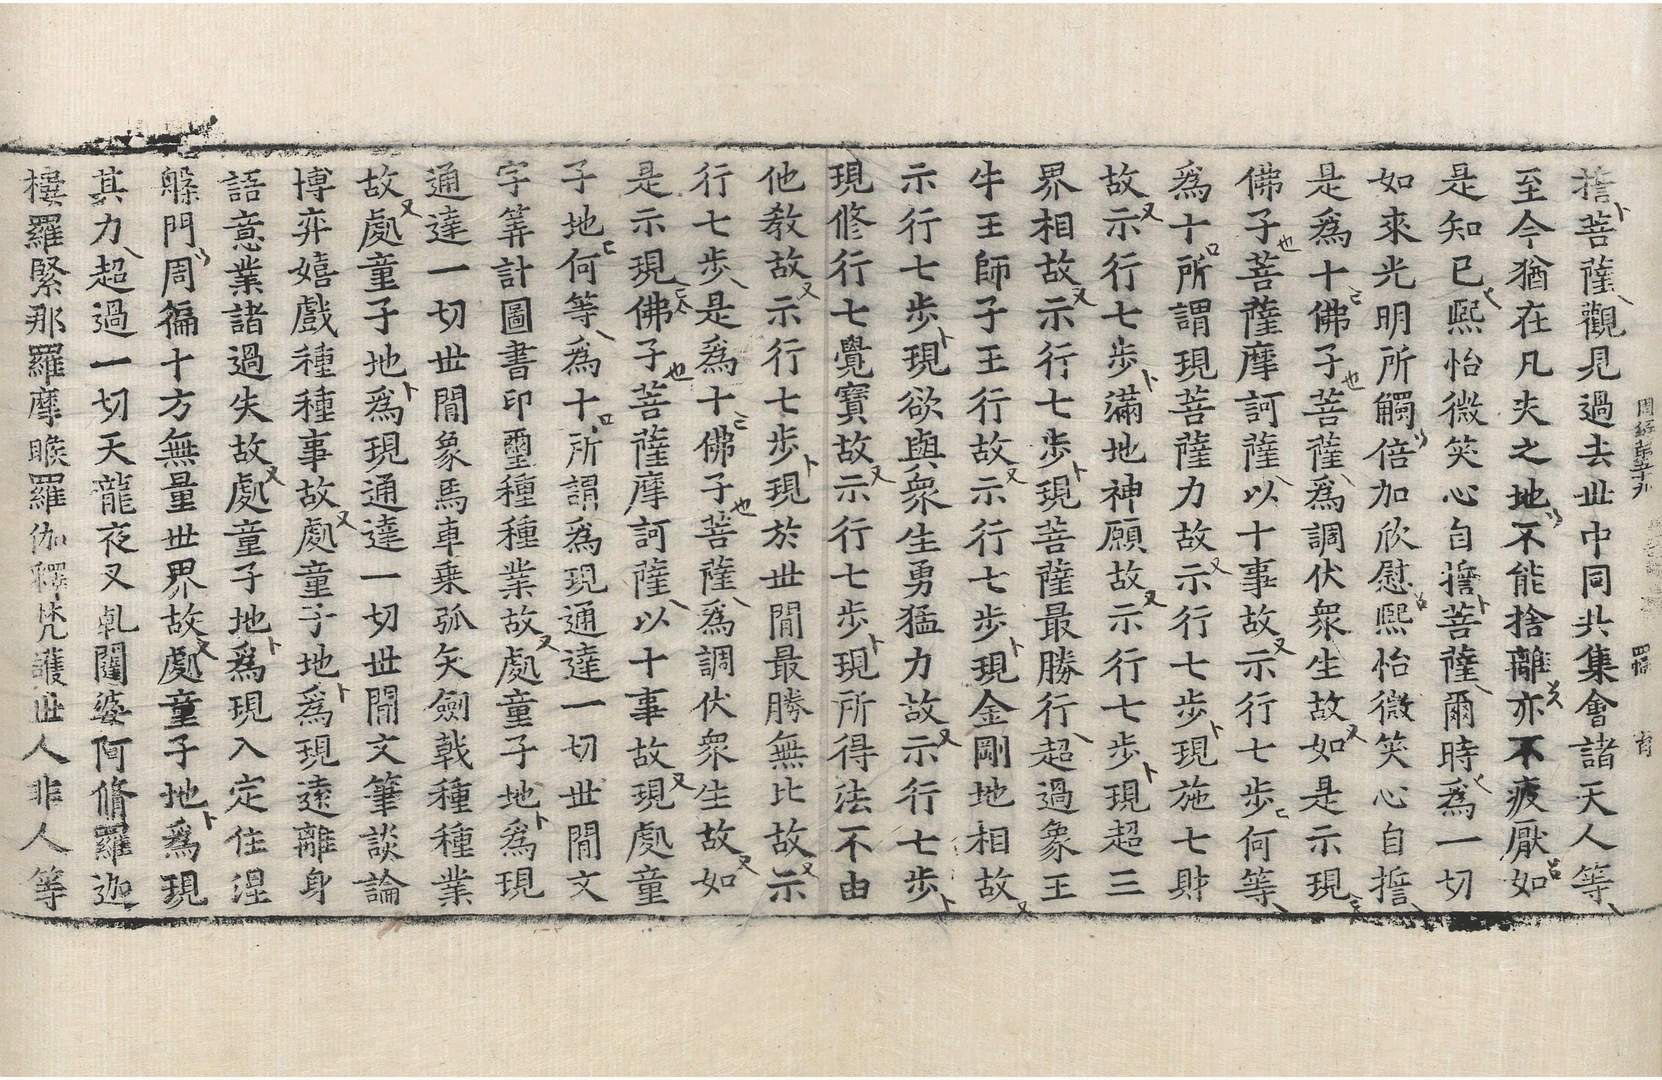 擔菩薩觀見過去世中同共集會諸天人等
至今猶在凡夫之地不能捨離亦不疲厭如
是知已熙怡微笑心自擔菩薩爾時爲一切
如來光明所觸倍加欣慰熙怡微笑心自擔
是爲十佛子菩薩爲調伏衆生故如是示現
佛子菩薩摩訶薩以十事故示行七步何等
爲十所謂現菩薩力故示行七步現施七財
故示行七步滿地神願故示行七步現超三
界相故示行七步現菩薩最勝行超過象王
牛王師子王行故示行七步現金剛地相故
示行七步現欲與衆生勇猛力故示行七步
現修行七覺寶故示行七步現所得法不由
他教故示行七步現於世間最勝無比故示
行七步是爲十佛子菩薩爲調伏衆生故如
是示現佛子菩薩摩訶薩以十事故現處童
子地何等爲十所謂爲現通達一切世間文
字筭計圖書印璽種種業故處童子地爲現
通達一切世間象馬車乗弧矢劍戟種種業
故處童子地爲現通達一切世間文筆談論
博弈嬉戲種種事故處童子地爲現遠離身
語意業諸過失故處童子地爲現入定住涅
槃門周徧十方無量世界故處童子地爲現
其力超過一切天龍夜叉乹闥婆阿脩羅迦
樓羅緊那羅摩睺羅伽釋梵護世人非人等